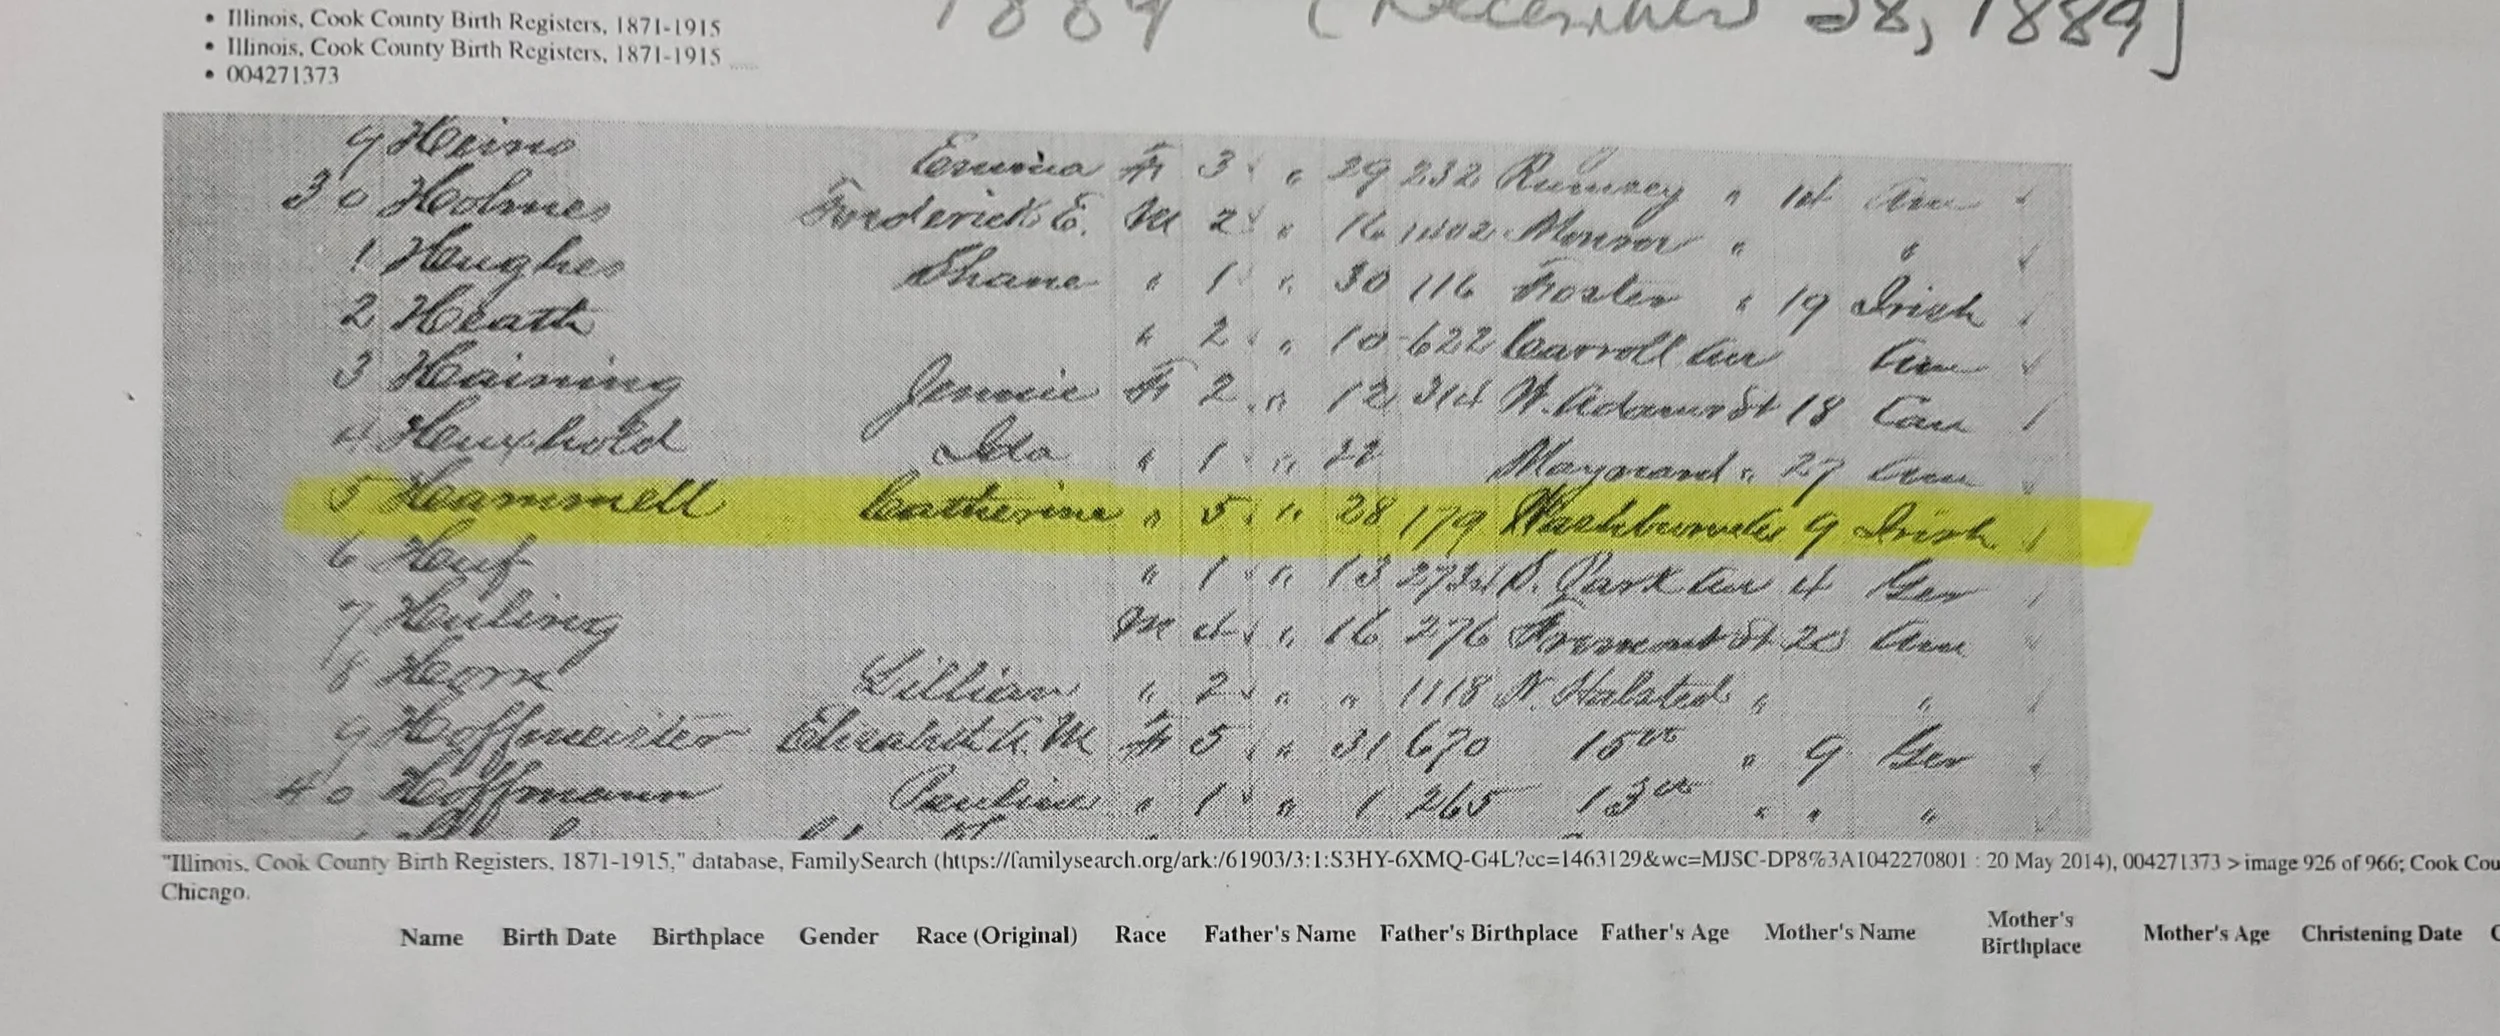 • Illinois, Cook County Birth Registers, 1871-1915
• Illinois, Cook County Birth Registers, 1871-1915
• 004271373
1889 (December 28, 1889]
9 Heims Emma F 3 " 29 232 Rumsey " 1st Am
30 Holmes Frederick E. M 2 " 16 1102 Monroe " "
1 Hughes Shane " 1 " 30 116 Foster " 19 Irish
2 Heath " 2 " 10 622 Carroll Av Am
3 Haining Jennie F 2 " 12 314 W. Adams St 18 Can
4 Ida " 1 " 22 Maynard " 27 Am
5 Hammell Catherine " 5 " 28 179 9 Irish
6 " 1 " 13 S. Park Av 4 Ger
7 M 4 " 16 276 Fremont St 20 Am
8 Lillian " 2 " " 1118 N. Halsted " "
9 Hoffmeister Elizabeth A. M F 5 " 31 670 15th " 9 Ger
40 Hoffmann Pauline " 1 " 1 265 13th " " "
"Illinois, Cook County Birth Registers, 1871-1915," database, FamilySearch (https://familysearch.org/ark:/61903/3:1:S3HY-6XMQ-G4L?cc=1463129&wc=MJSC-DP8%3A1042270801 : 20 May 2014), 004271373 > image 926 of 966; Cook Cou
Chicago.
Name Birth Date Birthplace Gender Race (Original) Race Father's Name Father's Birthplace Father's Age Mother's Name Mother's Birthplace Mother's Age Christening Date C